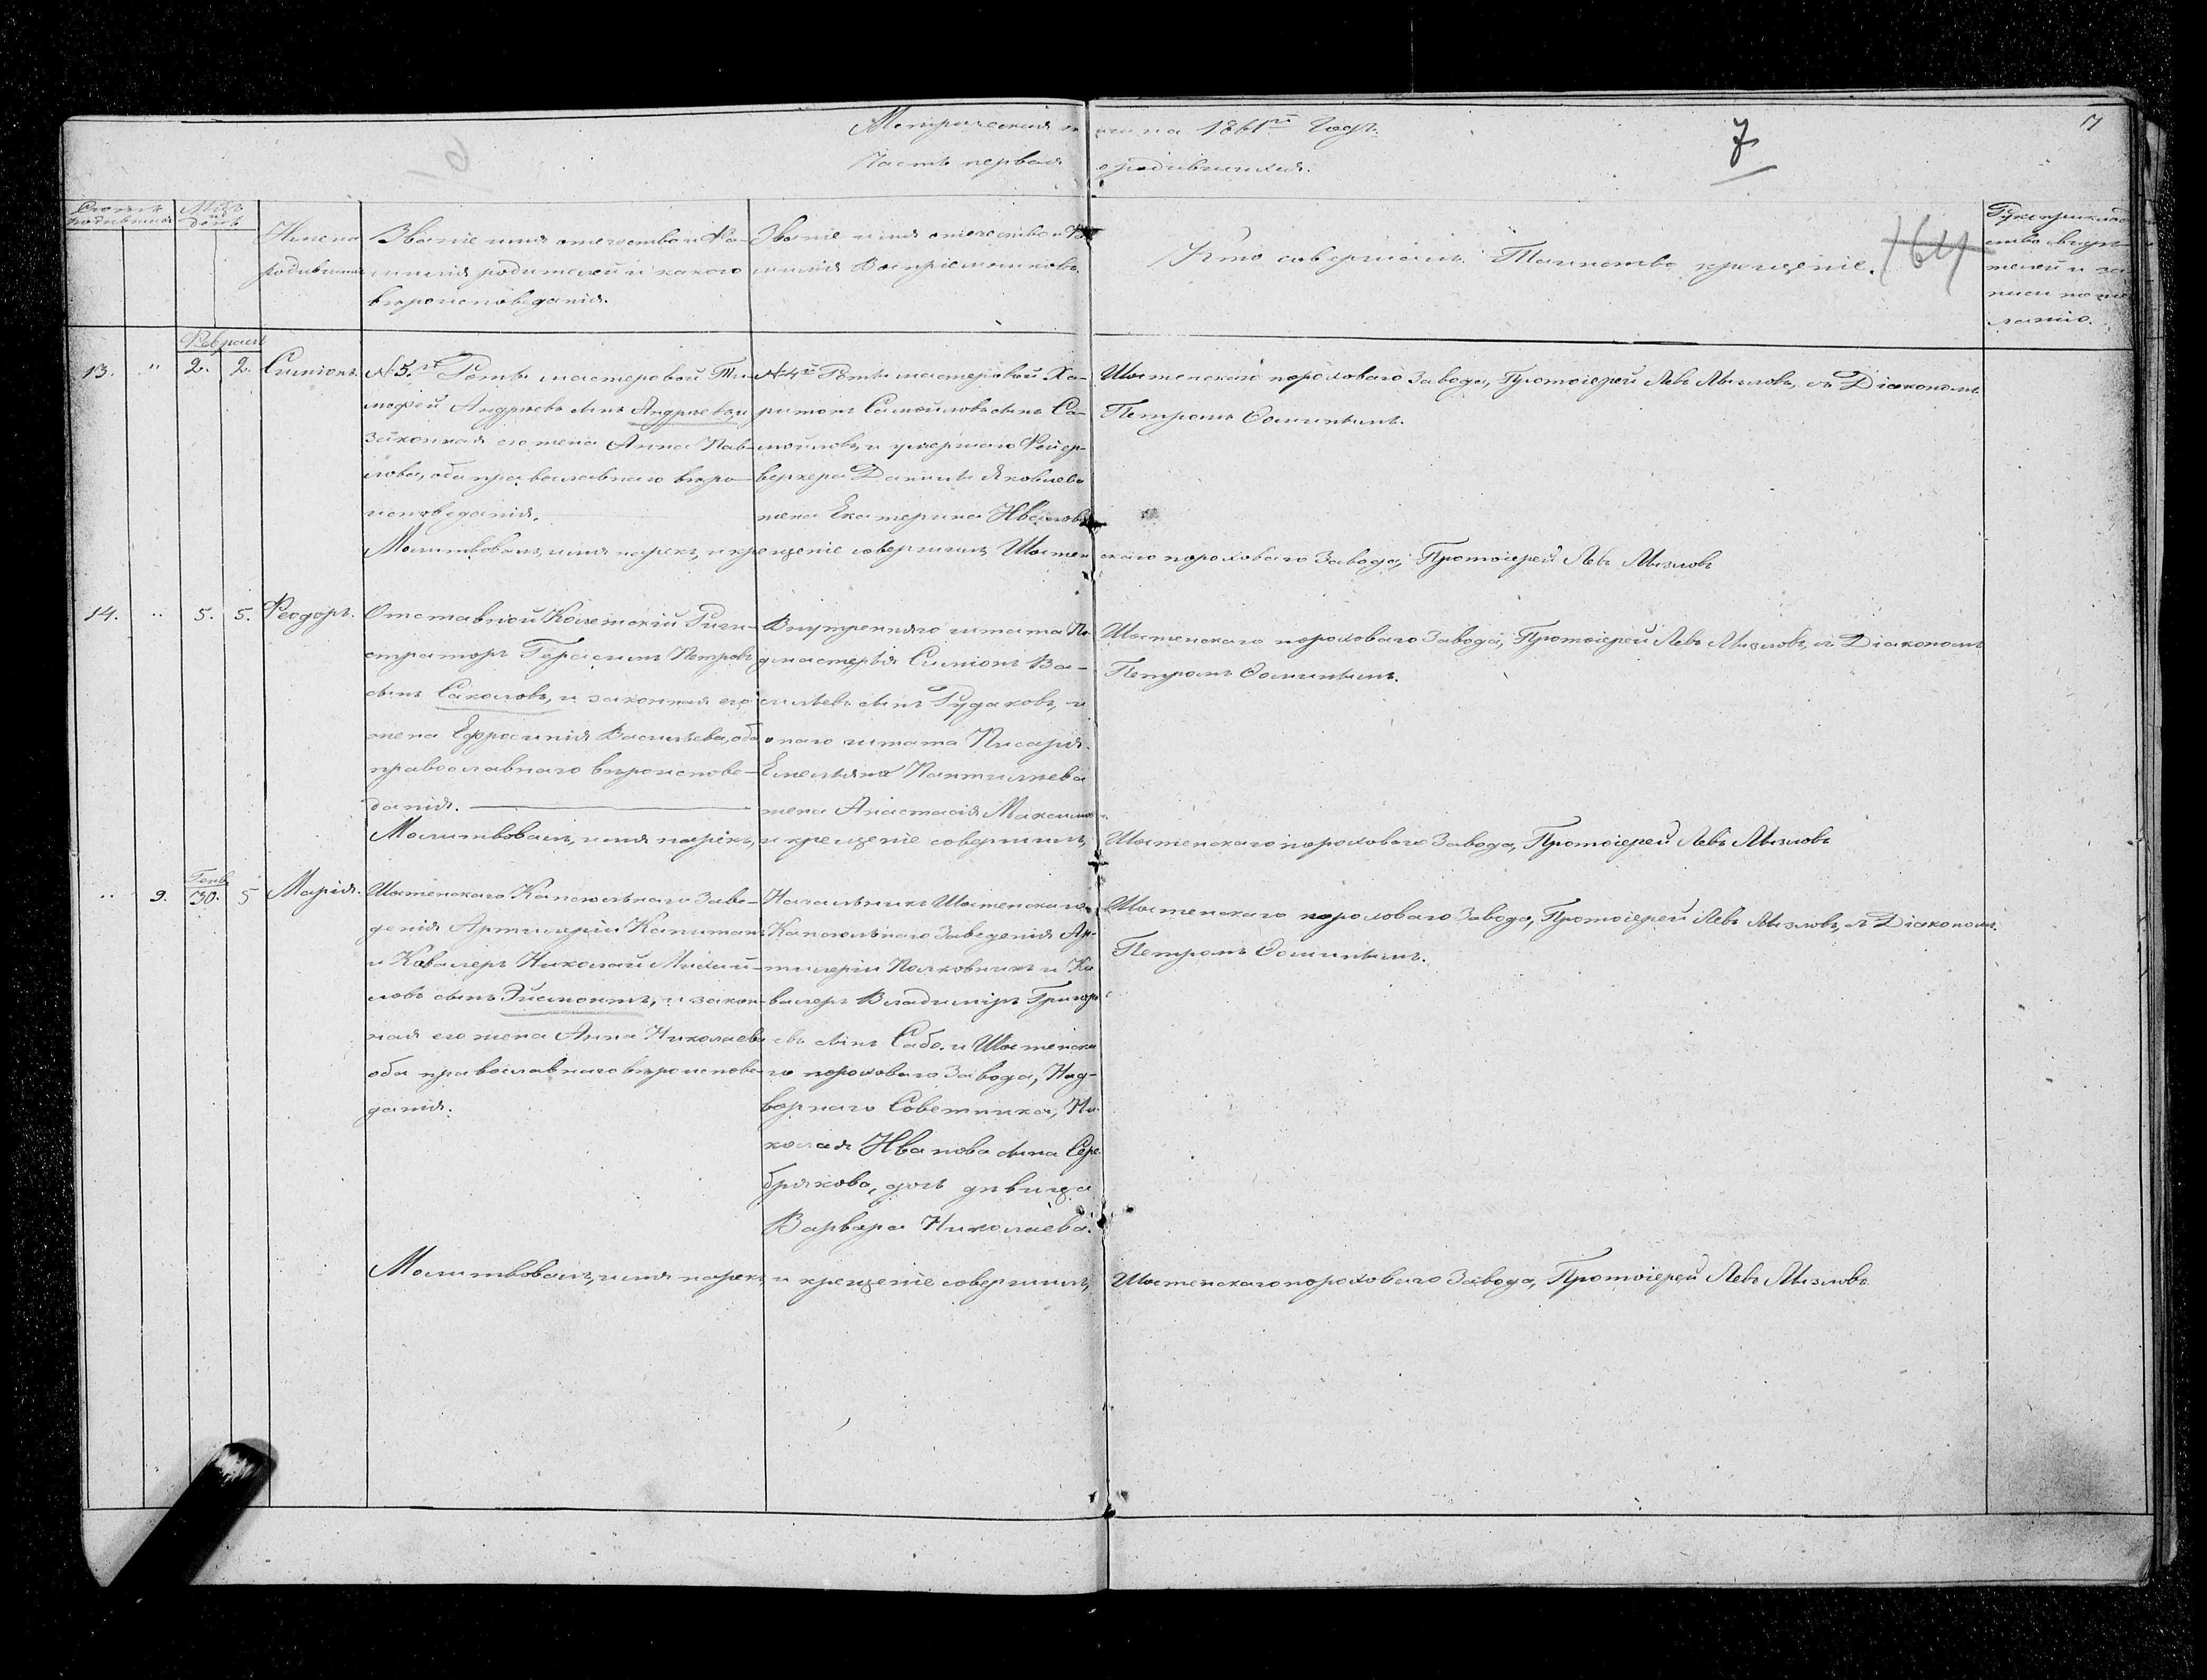 Метрической книги на 1861й Годъ.
Часть первая о родившихся.
7
17
164
Счетъ родившихся
Мѣсяцъ и день
Имена родившихся
Званіе имя отчество и Фа-
милія родителей и какого
вѣроисповеданія.
Званіе имя отечество и Фа-
милія Воспріемниковъ.
Кто совершалъ Таинство крещеніе.
Рукоприклад
ство свидѣ-
телей и за
писи по же
ланію.
Февраль
13. " 2. 2. Симіонъ.
№ 5.й Роты мастеровой Ти-
мофей Андреевъ сынъ Андреевъ, и
законная его жена Анна Пав-
лова, оба православнаго вѣро-
исповеданія.
№ 4й Роты мастеровой Ха-
ритонъ Самойловъ сынъ Са-
мойловъ, и умершаго Фейер-
веркера Данилы Яковлева
жена Екатерина Иванова
Шостенскаго пороховаго Завода, Протоіерей Левъ Мызловъ, съ Діакономъ
Петромъ Фоминымъ.
Молитвовалъ, имя нарекъ, и крещеніе совершилъ, Шостенскаго пороховаго Завода, Протоіерей Левъ Мызловъ
14. " 5. 5. Феодоръ.
Отставной Колежскій Реги-
страторъ Герасимъ Петровъ
сынъ Саколовъ, и законная его
жена Ефросинія Васильева, оба
православнаго вѣроиспове-
данія.
Внутренняго штата По
дмастерья Симіонъ Ва-
сильевъ сынъ Рудаковъ, и
онаго штата Писаря
Емельяна Пантилѣева
жена Анастасія Максимов
Шостенскаго пороховаго Завода, Протоіерей Левъ Мызловъ, съ Діакономъ
Петромъ Фоминымъ.
Молитвовалъ, имя нарекъ, и крещеніе совершилъ, Шостенскаго пороховаго Завода, Протоіерей Левъ Мызловъ
Генв.
" 9. 30. 5 Марія.
Шостенскаго Капсюльнаго Заве-
денія Артилеріи Капитанъ
и Кавалеръ Николай Михай-
ловъ сынъ Эйсмонтъ, и закон-
ная его жена Анна Николаева
оба православнаго вѣроиспове-
данія.
Начальникъ Шостенскаго
Капсюльнаго Заведенія Ар-
тилеріи Полковникъ и Ка
валеръ Владиміръ Григорь
евъ сынъ Сабо. и Шостенска
го пороховаго Завода, Над-
ворнаго Советника, Ни-
колая Иванова сына Сере
брякова, дочь дѣвица
Варвара Николаева.
Шостенскаго пороховаго Завода, Протоіерей Левъ Мызловъ, съ Діакономъ
Петромъ Фоминымъ.
Молитвовалъ, имя нарекъ, и крещеніе совершилъ, Шостенскаго пороховаго Завода, Протоіерей Левъ Мызловъ